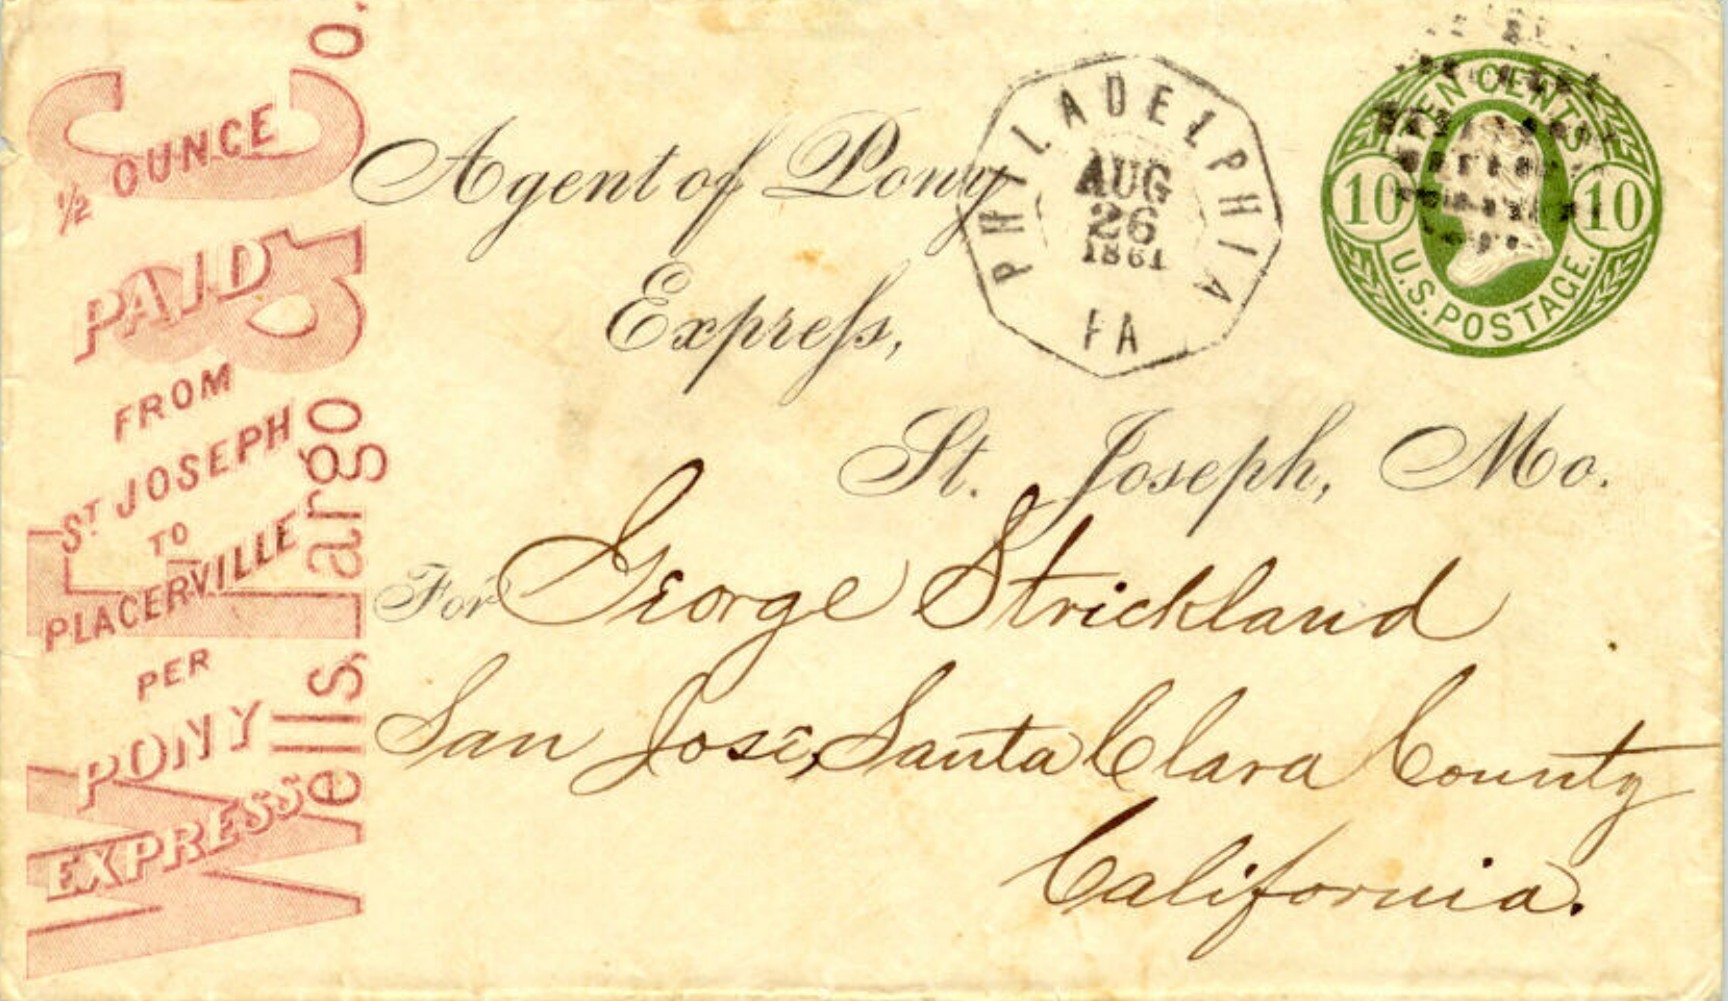 Wells, Fargo & Co.
½ OUNCE
PAID
FROM
ST JOSEPH
TO
PLACERVILLE
PER
PONY
EXPRESS
Agent of Pony
Expreſs,
St. Joseph, Mo.
For George Strickland
San José, Santa Clara County
California.
PHILADELPHIA
AUG
26
1861
PA
TEN CENTS
10 10
U.S. POSTAGE.